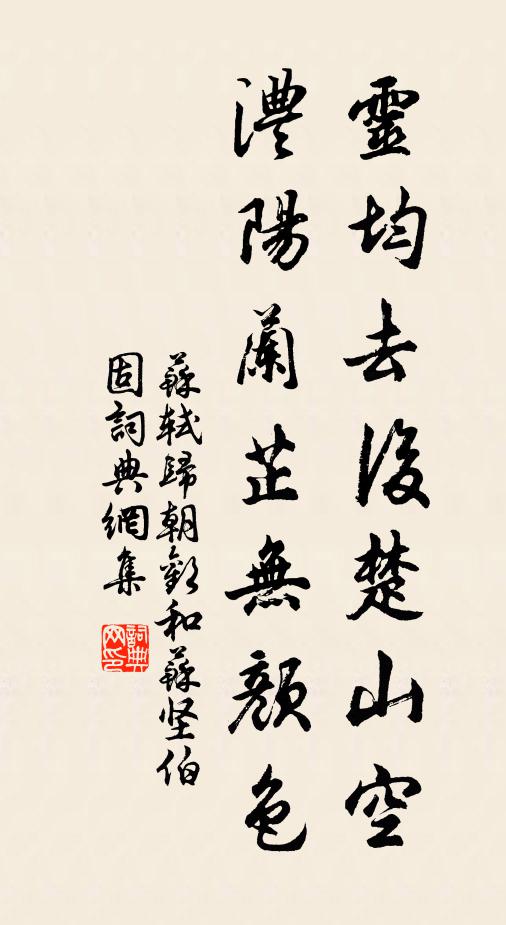 靈均去後楚山空
澧陽蘭芷無顏色
蘇軾歸朝歡和蘇坚伯
固詞典網集
詞典网印